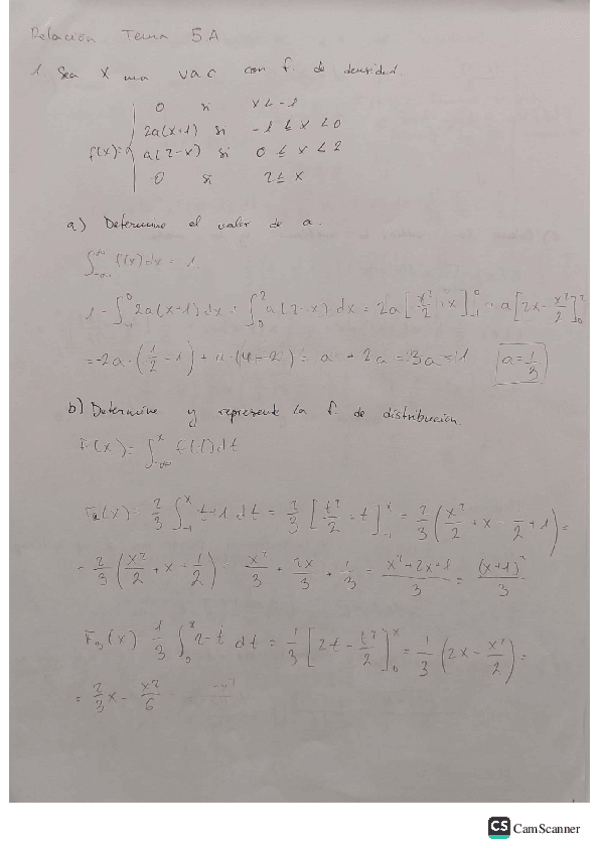 Relación Tema 5A
1. Sea X una vac con f. de densidad.
0 si x < -1
2a(x+1) si -1 ≤ x < 0
f(x)= a(2-x) si 0 ≤ x < 2
0 si 2 ≤ x
a) Determine el valor de a.
∫_{-∞}^{+∞} f(x)dx = 1
1 = ∫_{-1}^{0} 2a(x+1)dx + ∫_{0}^{2} a(2-x)dx = 2a[x²/2 + x]_{-1}^{0} + a[2x - x²/2]_{0}^{2}
= -2a·(1/2 - 1) + a·(4-2) = a + 2a = 3a = 1 a = 1/3
b) Determine y represente la f. de distribución.
F(x) = ∫_{-∞}^{x} f(t)dt
(x) = 2/3 ∫_{-1}^{x} t+1 dt = 2/3 [t²/2 + t]_{-1}^{x} = 2/3 (x²/2 + x - 1/2 + 1) =
= 2/3 (x²/2 + x + 1/2) = x²/3 + 2x/3 + 1/3 = x²+2x+1/3 = (x+1)²/3
(x) = 1/3 ∫_{0}^{x} 2-t dt = 1/3 [2t - t²/2]_{0}^{x} = 1/3 (2x - x²/2) =
= 2/3 x - x²/6
CS CamScanner